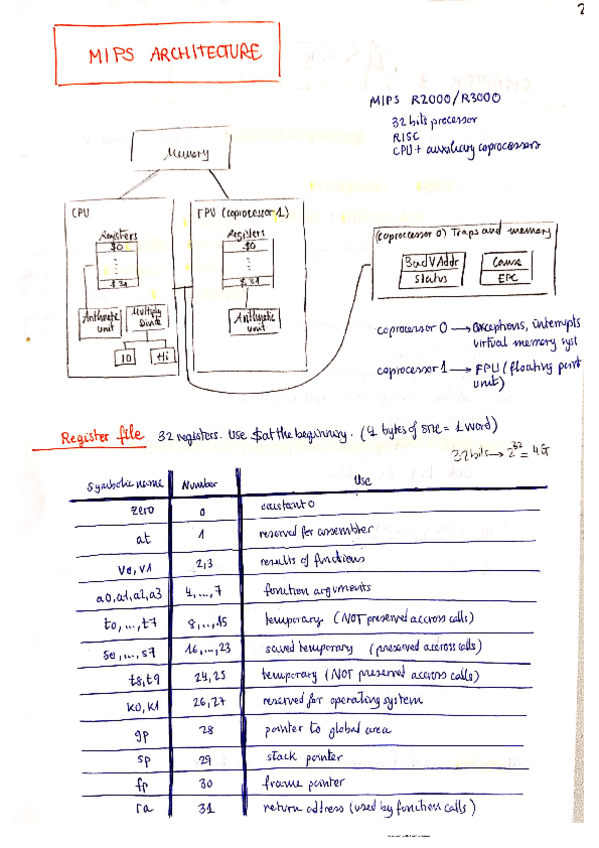 2
MIPS ARCHITECTURE
MIPS R2000/R3000
32 bits processor
RISC
CPU + auxiliary coprocessors
Memory
CPU
Registers
$0
$31
Arithmetic unit
Multiply Divide
lo
Hi
FPU (coprocessor 1)
Registers
$0
$31
Arithmetic unit
(coprocessor 0) Traps and memory
BadVAddr
Status
Cause
EPC
coprocessor 0 → exceptions, interrupts
virtual memory syst
coprocessor 1 → FPU (floating point
unit)
Register file 32 registers. Use $ at the beginning. (4 bytes of size = 1 word)
32 bits → 2^32 = 4G
Symbolic name Number Use
zero 0 constant 0
at 1 reserved for assembler
v0, v1 2,3 results of functions
a0,a1,a2,a3 4,...,7 function arguments
t0,...,t7 8,...,15 temporary (NOT preserved accross calls)
s0,...,s7 16,...,23 saved temporary (preserved accross calls)
t8,t9 24,25 temporary (NOT preserved accross calls)
k0,k1 26,27 reserved for operating system
gp 28 pointer to global area
sp 29 stack pointer
fp 30 frame pointer
ra 31 return address (used by function calls)